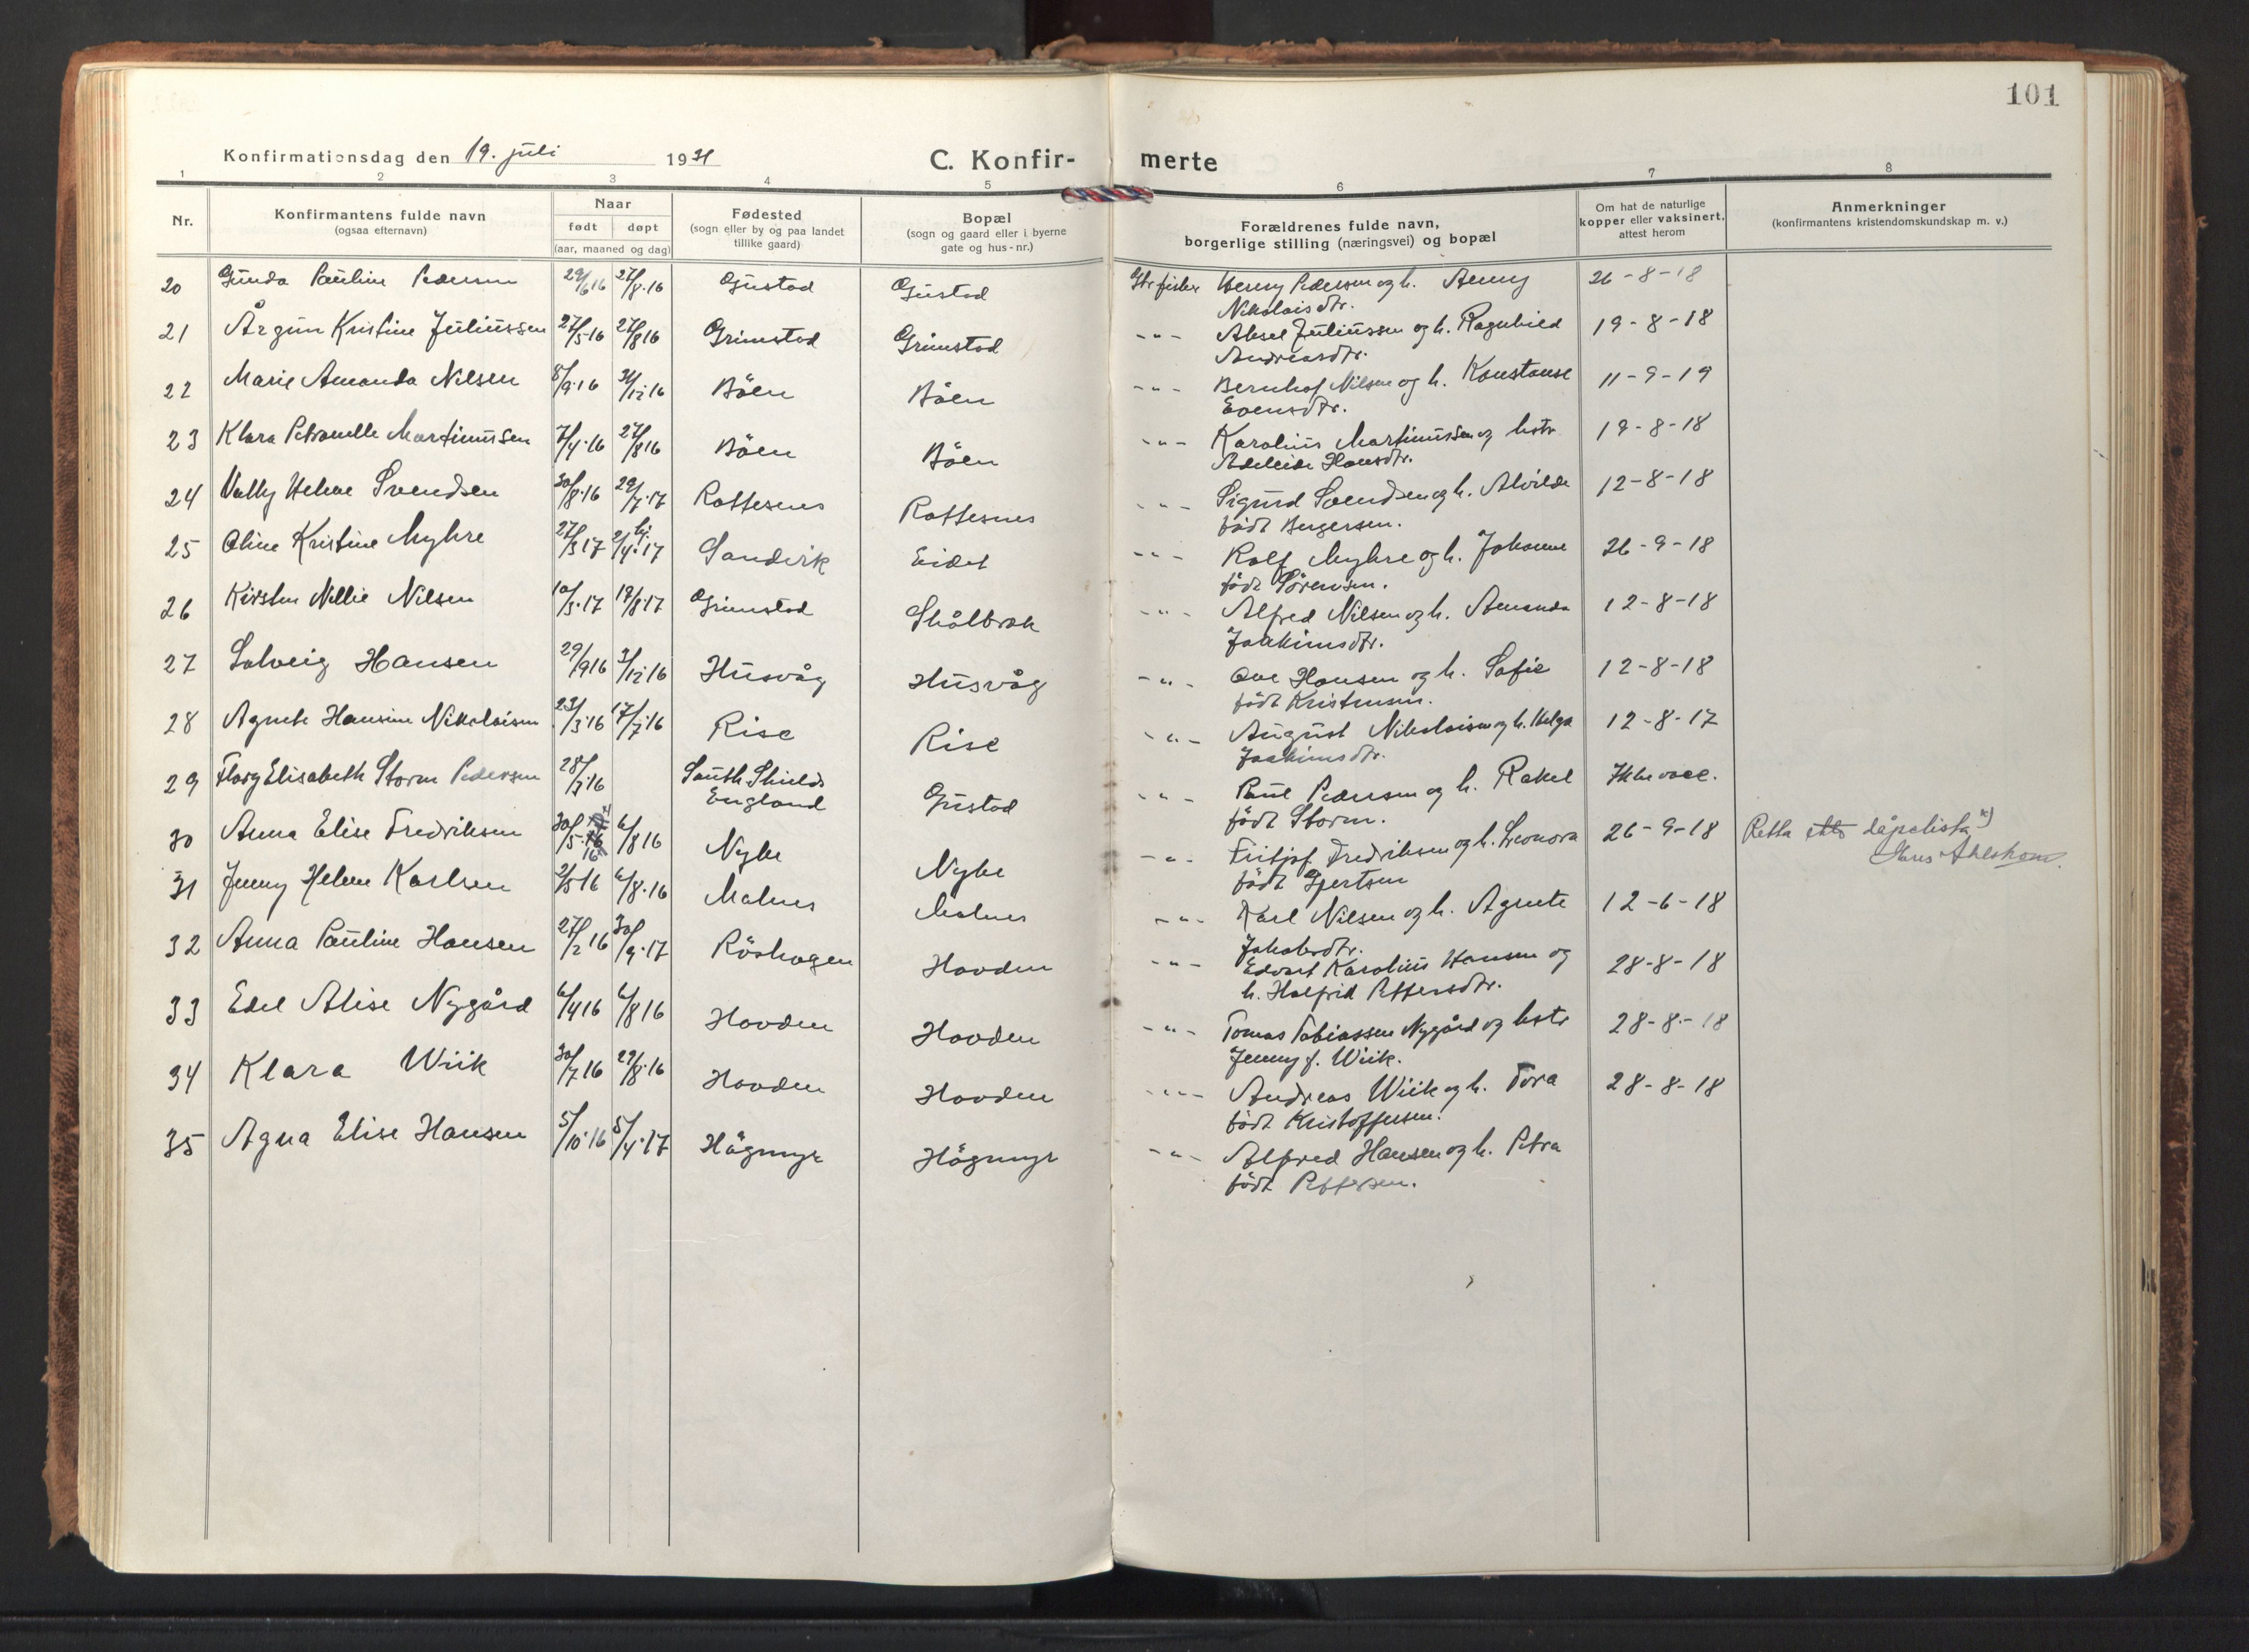 101
Konfirmationsdag den 19. juli 1931
C. Konfir- merte
1 2 3 4 5 6 7 8
Nr.
Konfirmantens fulde navn
(ogsaa efternavn)
Naar
født døpt
(aar, maaned og dag)
Fødested
(sogn eller by og paa landet
tillike gaard)
Bopæl
(sogn og gaard eller i byerne
gate og hus-nr.)
Forældrenes fulde navn,
borgerlige stilling (næringsvei) og bopæl
Om hat de naturlige
kopper eller vaksinert,
attest herom
Anmerkninger
(konfirmantens kristendomskundskap m. v.)
20 Gunda Pauline Pedersen 29/6 16 27/8.16 Gustad Gustad Gbr fisker Henry Pedersen og h. Anny 26-8-18
Nikolaisdtr.
21 Årgun Kristine Juliussen 27/5 16 27/8 16 Grimstad Grimstad -"- Aksel Juliussen og h. Ragnhild 19-8-18
Andreasdtr.
22 Marie Amanda Nilsen 8/9.16 31/12 16 Böen Böen -"- Bernhof Nilsen og h. Konstanse 11-9-19
Evensdtr.
23 Klara Petronelle Martinussen 7/4.16 27/8 16 Böen Böen -"- Karolius Martinussen og hstr 19-8-18
Adeleide Hansdtr.
24 Vally Helene Svendsen 30/8.16 29/7.17 Rottesnes Rottesnes -"- Sigurd Svendsen og h. Alvilde 12-8-18
födt Bergersen.
25 Oline Kristine Myhre 27/3 17 2/4.17 hj. Sandvik Eidet -"- Rolf Myhre og h. Johanne 26-9-18
födt Sörensen.
26 Kirsten Nellie Nilsen 10/3.17 19/8.17 Grimstad Skålbrok -"- Alfred Nilsen og h. Amanda 12-8-18
Joakimsdtr.
27 Solveig Hansen 29/9 16 3/12 16 Husvåg Husvåg -"- Ove Hansen og h. Sofie 12-8-18
födt Kristensen.
28 Agnete Hansine Nikolaisen 23/3.16 17/7.16 Rise Rise -"- August Nikolaisen og h. Helga 12-8-17
Joakimsdtr.
29 Flory Elisabeth Storm Pedersen 28/7 16 South Shields Gustad -"- Paul Pedersen og h. Rakel Ikke vacc.
England
födt Storm.
30 Anna Elise Fredriksen 30/5. 16 6/8 16 Nyke Nyke -"- Fritjof Fredriksen og h. Leonora 26-9-18 Retta etter dåpslista x)
födt Gjertsen
31 Jenny Helene Karlsen 2/5 16 6/8.16 Malnes Malnes -"- Karl Nilsen og h. Agnete 12-6-18
Jakobsdtr.
32 Anna Pauline Hansen 27/2 16 30/9.17 Röshagen Hovden -"- Edvart Karolius Hansen og 28-8-18
h. Halfrid Pettersdtr.
33 Edel Alise Nygård 6/4 16 6/8 16 Hovden Hovden -"- Tomas Tobiassen Nygård og hstr 28-8-18
Jenny f. Wiik.
34 Klara Wiik 30/7 16 27/8.16 Hovden Hovden -"- Andreas Wiik og h. Tora 28-8-18
födt Kristoffersen.
35 Agna Elise Hansen 5/10.16 5/4.17 Högmyr Högmyr -"- Alfred Hansen og h. Petra
födt Pettersen.